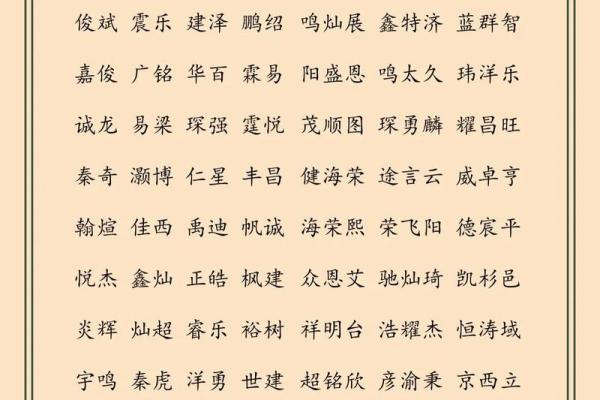 俊斌 震乐 建泽 鹏绍 鸣灿展 鑫特济 蓝群智
嘉俊 广铭 华百 霖易 阳盛恩 鸣太久 玮洋乐
诚龙 易梁 琛强 霆悦 茂顺图 琛勇麟 耀昌旺
秦奇 灏博 仁星 丰昌 健海荣 途言云 威卓亨
翰煊 佳西 禹迪 帆诚 海荣熙 荣飞阳 德宸平
悦杰 鑫灿 正皓 枫建 众恩艾 驰灿琦 凯杉邑
炎辉 灿超 睿乐 裕树 祥明台 浩耀杰 恒涛域
宇鸣 秦虎 洋勇 世建 超铭欣 彦渝秉 京西立